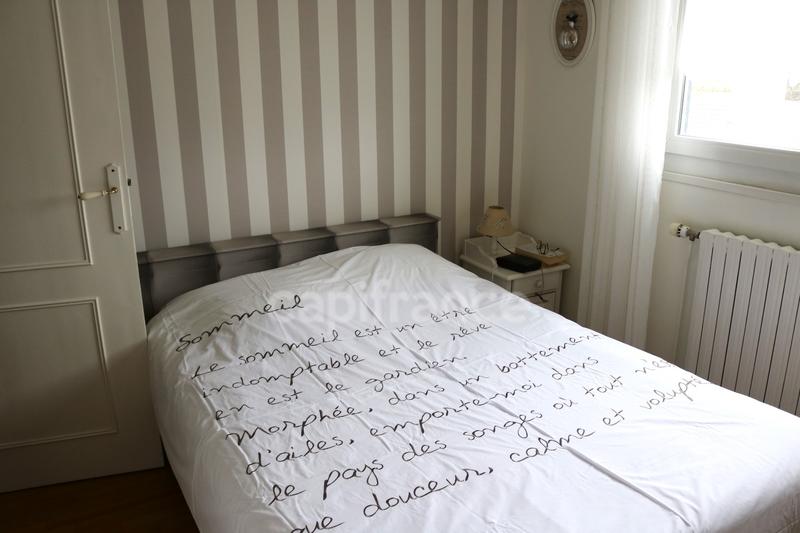 Sommeil
Le sommeil est un être
indomptable et le rêve
en est le gardien.
Morphée, dans un battement
d'ailes, emporte-moi dans
le pays des songes où tout n'est
que douceur, calme et volupté
capifrance